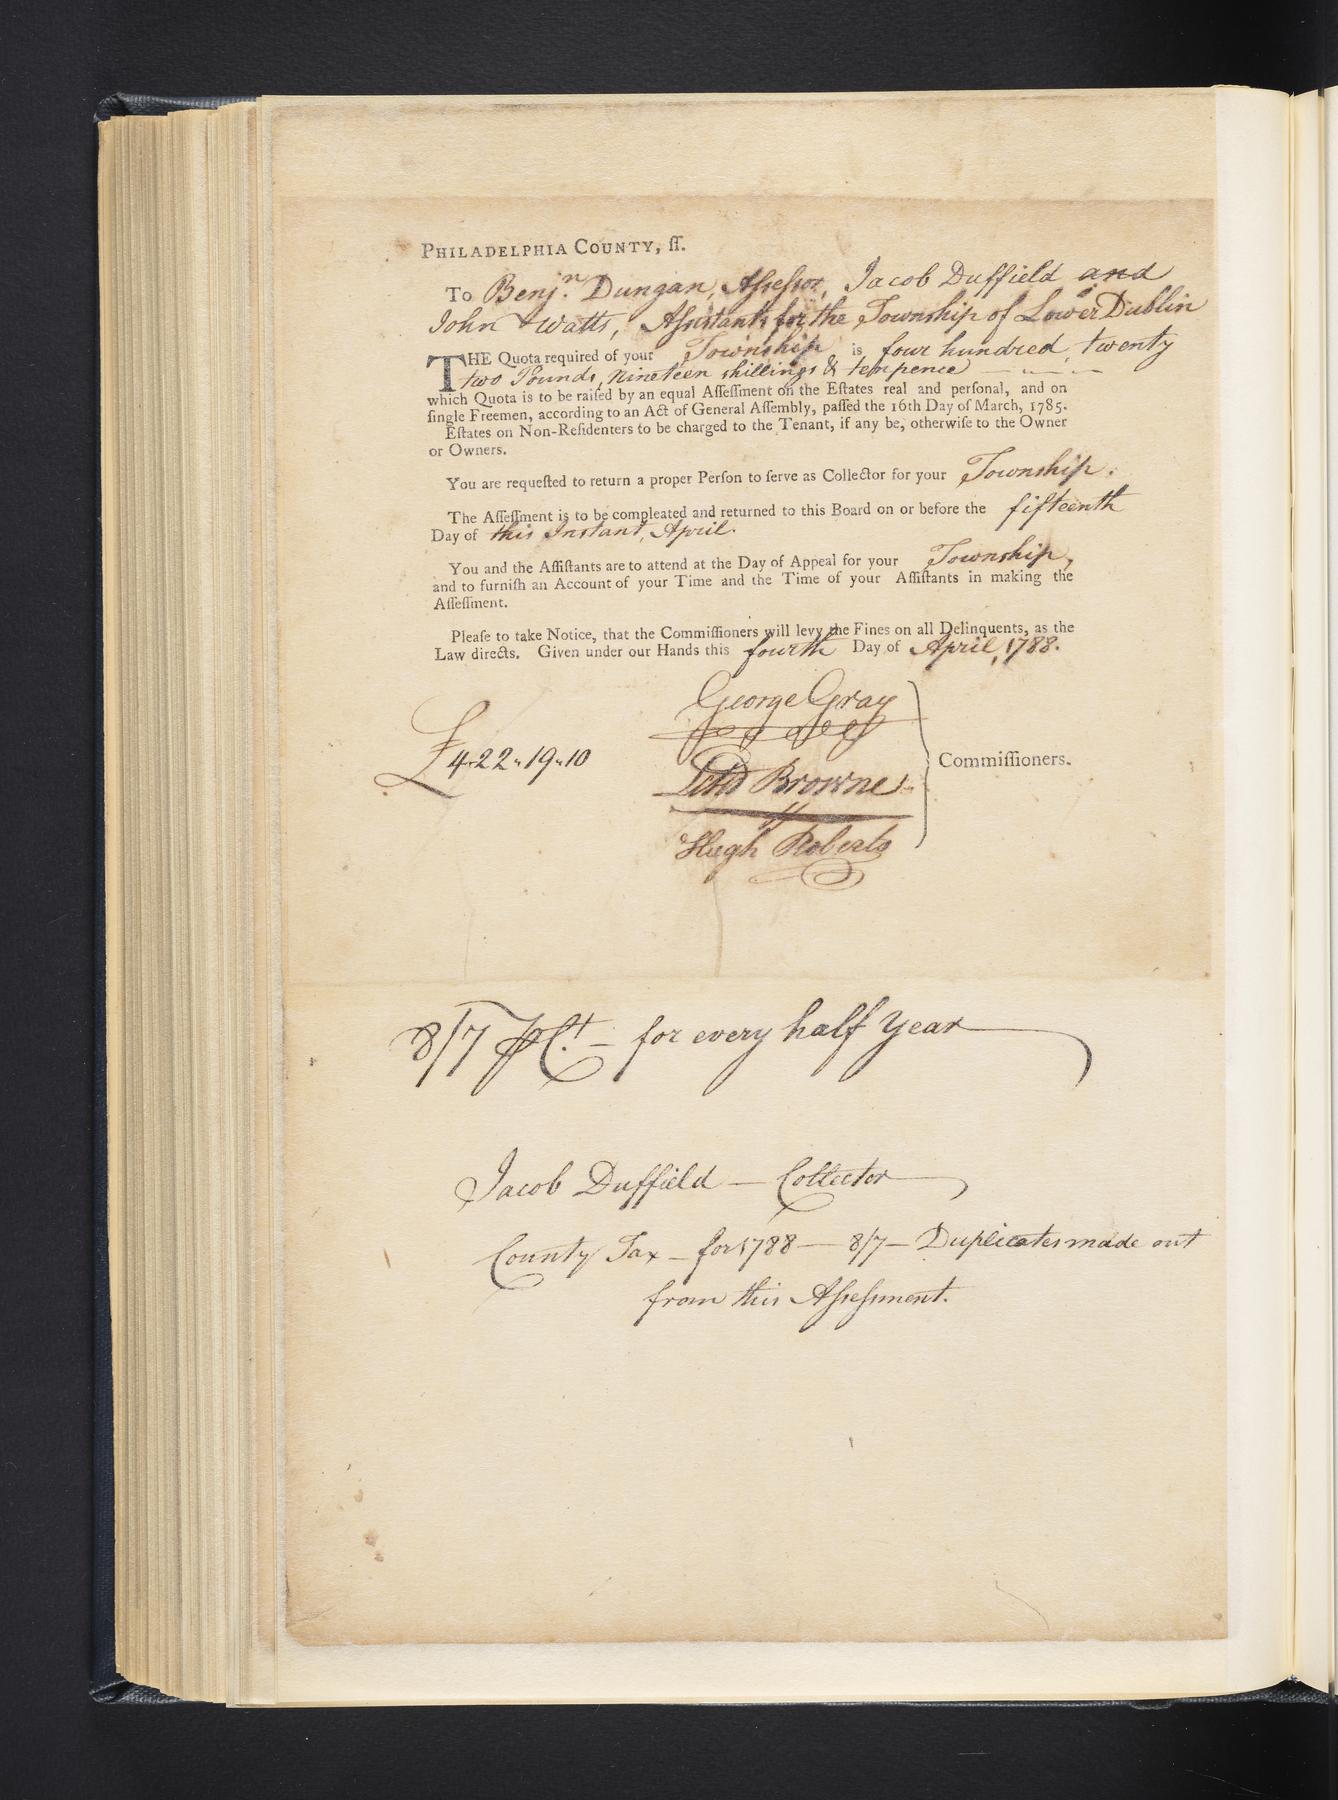 PHILADELPHIA COUNTY, ſſ.
To Benjn. Dungan, Aſseſsor, Jacob Duffield and
John Watts, Aſsistants for the Township of Lower Dublin
THE Quota required of your Township is four hundred, twenty
two Pounds, nineteen shillings & tenpence
which Quota is to be raiſed by an equal Aſſeſſment on the Eſtates real and perſonal, and on
ſingle Freemen, according to an Act of General Aſſembly, paſſed the 16th Day of March, 1785.
Eſtates on Non-Reſidenters to be charged to the Tenant, if any be, otherwiſe to the Owner
or Owners.
You are requeſted to return a proper Perſon to ſerve as Collector for your Township.
The Aſſeſſment is to be compleated and returned to this Board on or before the fifteenth
Day of this Instant, April.
You and the Aſſiſtants are to attend at the Day of Appeal for your Township,
and to furniſh an Account of your Time and the Time of your Aſſiſtants in making the
Aſſeſſment.
Pleaſe to take Notice, that the Commiſſioners will levy the Fines on all Delinquents, as the
Law directs. Given under our Hands this fourth Day of April, 1788.
George Gray
£422"19"10
Commiſſioners.
Browne
Hugh Roberts
8/7 ⅌ Ct. — for every half Year
Jacob Duffield — Collector
County Tax — for 1788 — 8/7 — Duplicates made out
from this Aſseſsment.